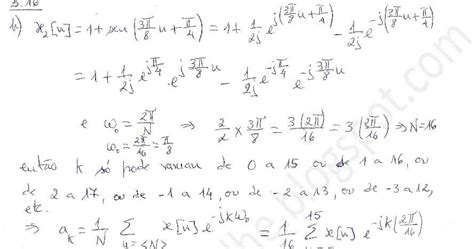 3.16
b) x₂[n] = 1 + sen(3π/8 n + π/4) = 1 + 1/2j e^{j(3π/8 n + π/4)} - 1/2j e^{-j(3π/8 n + π/4)}
= 1 + 1/2j e^{jπ/4} e^{j3π/8 n} - 1/2j e^{-jπ/4} e^{-j3π/8 n}
e ω₀ = 2π/N ⇒ 2/2 × 3π/8 = 3(2π)/16 = 3(2π/16) ⇒ N=16
ω₀ = 2π/16 = π/8
então k só pode variar de 0 a 15 ou de 1 a 16, ou
de 2 a 17, ou de -1 a 14, ou de -2 a 13, ou de -3 a 12,
etc.
⇒ a_k = 1/N Σ_{n=<N>} x[n] e^{-jkω₀} = 1/16 Σ^{15} x[n] e^{-jk(2π/16)}
he.blogspot.com